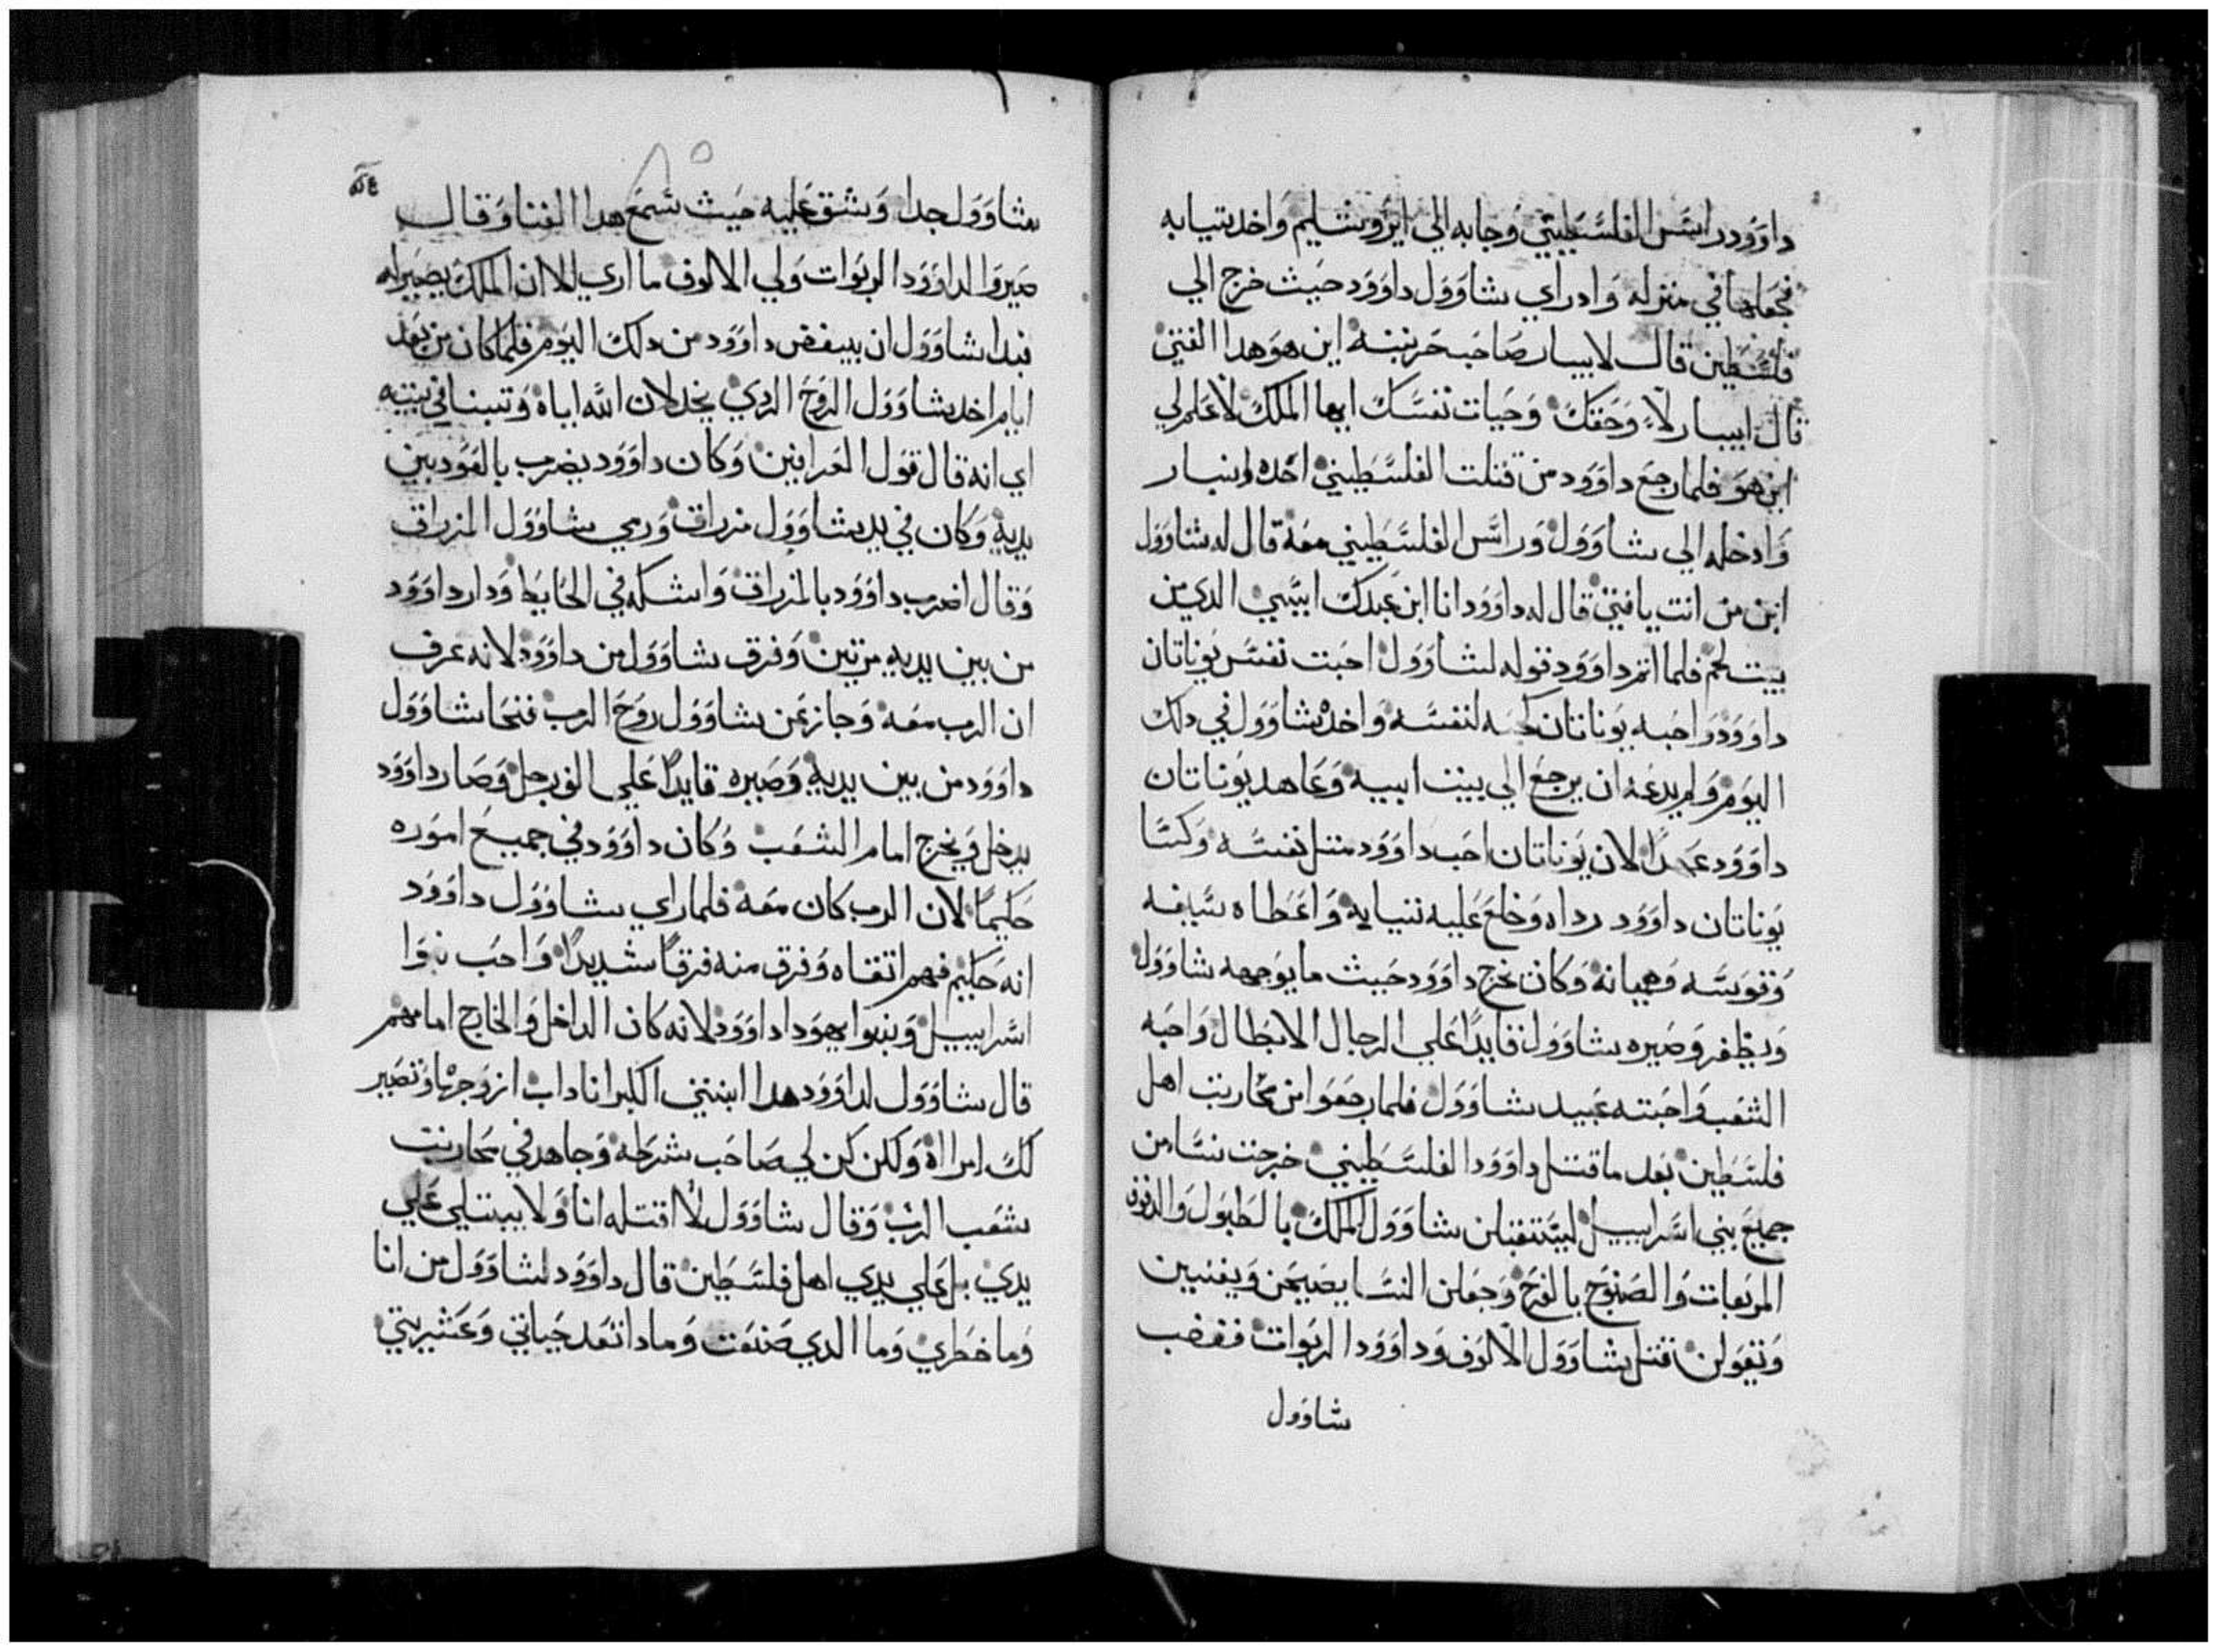 داوود راس الفلسطيني وجابه الي ايروشليم واخد تيابه
فجعلها في منزله وادراي شاوول داوود حيث خرج الي
فلسطين قال لابيار صاحب حربته اين هو هدا الفتي
قال ابيبار لا وحقك وحيات نفسك ايها الملك لا علم لي
اين هو فلما رجع داوود من قتلت الفلسطيني اخده ابنيار
وادخله الي شاوول وراس الفلسطيني معه قال له شاوول
ابن من انت يا فتي قال له داوود انا ابن عبدك ايسي الدي من
بيت لحم فلما اتم داوود قوله لشاوول احبت نفس يوناتان
داوود واحبه يوناتان كحبه لنفسه واخده شاوول في دلك
اليوم ولم يدعه ان يرجع الي بيت ابيه وعاهد يوناتان
داوود عهدا لان يوناتان احب داوود متل نفسه وكسا
يوناتان داوود رداه وخلع عليه تيابه واعطاه سيفه
وقوسه وهيانه وكان يخرج داوود حيث ما يوجهه شاوول
ويظفر وصيره شاوول قايدا علي الرجال الابطال واحبه
الشعب واحبته عبيد شاوول فلما رجعوا من محاربت اهل
فلسطين بعد ما قتل داوود الفلسطيني خرجت نسا من
جميع بني اسراييل ليستقبلن شاوول الملك بالطبول والدفوف
المربعات والصنوج بالفرح وجعلن النسا يصيحن ويغنين
وتقولن قتل شاوول الالوف وداوود الربوات فغضب
شاوول
شاوول جدا وشق عليه حيث سمع هدا الغنا وقال
صيروا لداوود الربوات ولي الالوف ما اري الا ان الملك يصير له
فبدا شاوول ان يبغض داوود من دلك اليوم فلما كان من بعد
ايام اخد شاوول الروح الردي بخدلان الله اياه وتبينا في بيته
اي انه قال قول العرافين وكان داوود يضرب بالعود بين
يديه وكان في يد شاوول مزراق ورمي شاوول المزراق
وقال اضرب داوود بالمزراق واشكه في الحايط ودار داوود
من بين يديه مرتين وفرق شاوول من داوود لانه عرف
ان الرب معه وجاز عن شاوول روح الرب فنحا شاوول
داوود من بين يديه وصيره قايدا علي الف رجل وصار داوود
يدخل ويخرج امام الشعب وكان داوود في جميع اموره
حليما لان الرب كان معه فلما راي شاوول داوود
انه حليم فهم اتقاه وفرق منه فرقا شديدا واحب بنوا
اسراييل وبنوا يهودا داوود لانه كان الداخل والخارج امامهم
قال شاوول لداوود هدا ابنتي اكبر اناداب ازوجها وتصير
لك امراة ولكن كن لي صاحب شرطه وجاهد في محاربت
شعب الرب وقال شاوول لا اقتله انا ولا يبتلي علي
يدي بل علي يدي اهل فلسطين قال داوود لشاوول من انا
وما خطري وما الدي صنعت وما دا تعد حياتي وعشيرتي